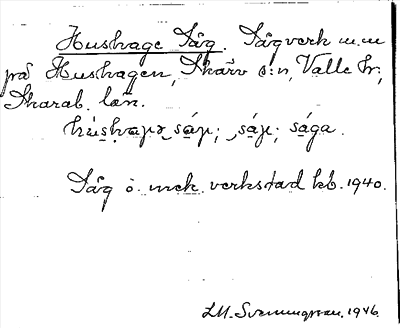 Hushage Såg. Sågverk m.m
på Hushagen, Skärv s:n, Valle hr;
Skarab. län.
såg; såg; såga.
Såg o. mek. verkstad kb. 1940.
L.M. Svenungsson. 1946